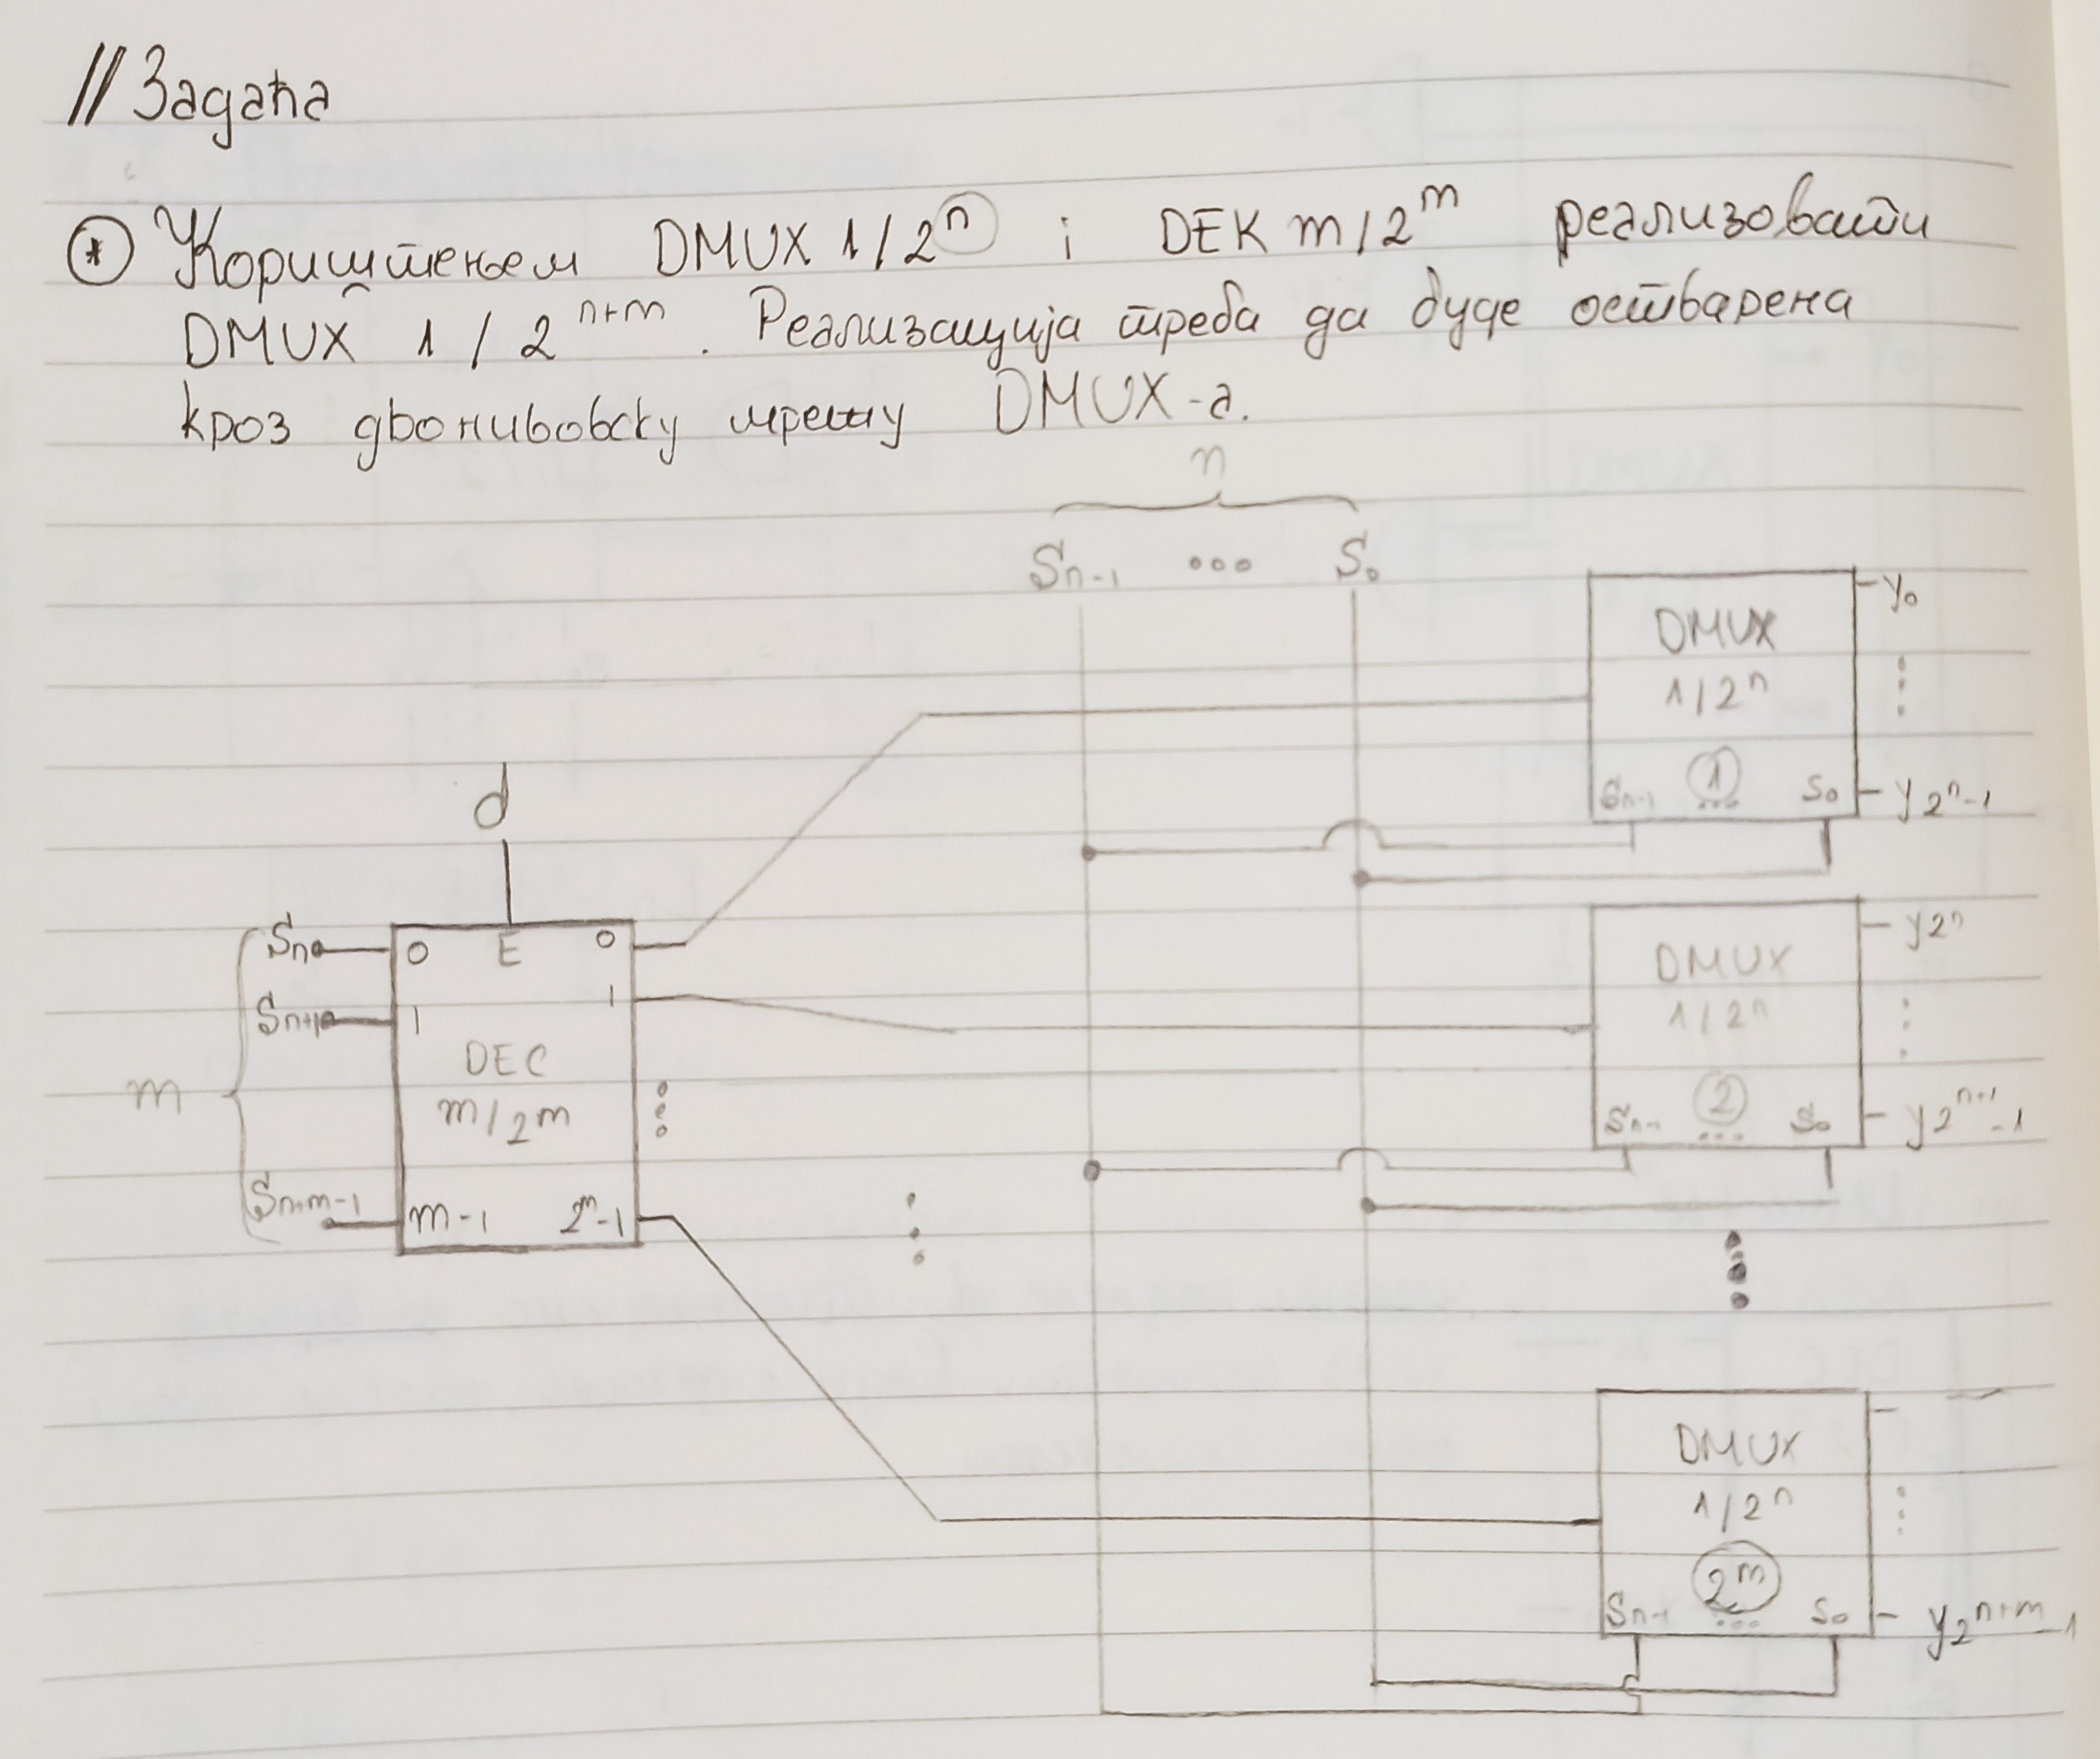 // Задаћа
* Кориштењем DMUX 1/2^n i DEK m/2^m реализовати
DMUX 1/2^{n+m}. Реализација треба да буде остварена
кроз двонивовску мрежу DMUX-a.
n
S_{n-1} ... S_0
DMUX
1/2^n
1
S_{n-1} ... S_0
y_0
⋮
y_{2^n-1}
d
m
S_n
S_{n+1}
S_{n+m-1}
0 E 0
1 1
DEC
m/2^m
⋮
m-1 2^m-1
DMUX
1/2^n
2
S_{n-1} ... S_0
y_{2^n}
⋮
y_{2^{n+1}-1}
⋮
⋮
DMUX
1/2^n
2^m
S_{n-1} ... S_0
⋮
y_{2^{n+m}-1}